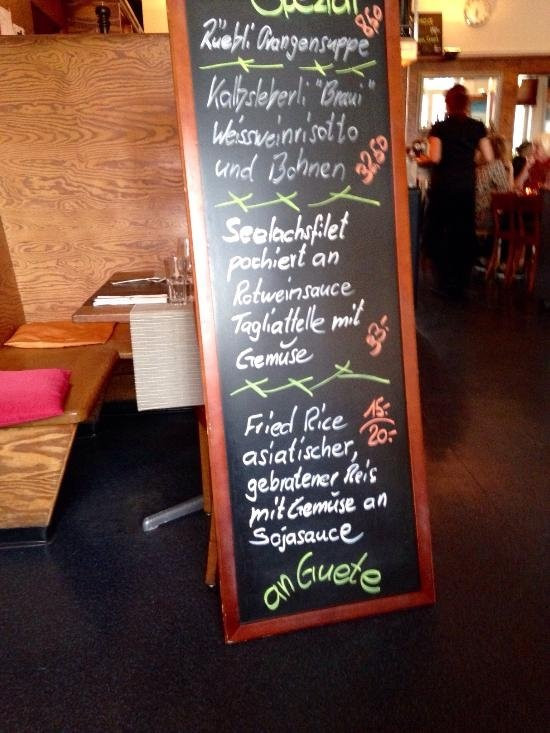 Spezial
Rüebli Orangensuppe 8,50
Kalbsleberli "Braui"
Weissweinrisotto
und Bohnen 32,50
Seelachsfilet
pochiert an
Rotweinsauce
Tagliattelle mit
Gemüse 33.-
Fried Rice 15.-
asiatischer, 20.-
gebratener Reis
mit Gemüse an
Sojasauce
an Guete